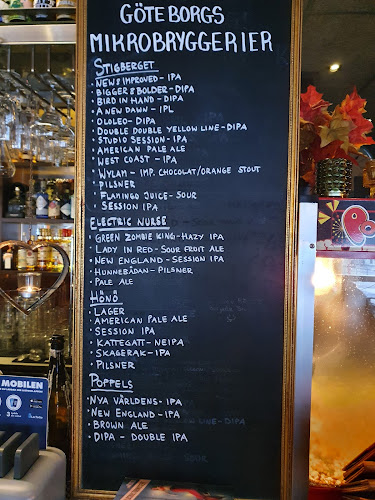 GÖTEBORGS
MIKROBRYGGERIER
STIGBERGET
· NEW & IMPROVED - IPA
· BIGGER & BOLDER - DIPA
· BIRD IN HAND - DIPA
· A NEW DAWN - IPL
· OLOLEO - DIPA
· DOUBLE DOUBLE YELLOW LINE - DIPA
· STUDIO SESSION - IPA
· AMERICAN PALE ALE
· WEST COAST - IPA
· WYLAM - IMP. CHOCOLAT/ORANGE STOUT
· PILSNER
· FLAMINGO JUICE - SOUR
· SESSION IPA
ELECTRIC NURSE
· GREEN ZOMBIE KING - HAZY IPA
· LADY IN RED - SOUR FRUIT ALE
· NEW ENGLAND - SESSION IPA
· HUNNEBÅDAN - PILSNER
· PALE ALE
HÖNÖ
· LAGER
· AMERICAN PALE ALE
· SESSION IPA
· KATTEGATT - NEIPA
· SKAGERAK - IPA
· PILSNER
POPPELS
· NYA VÄRLDENS - IPA
· NEW ENGLAND - IPA
· BROWN ALE
· DIPA - DOUBLE IPA
MOBILEN